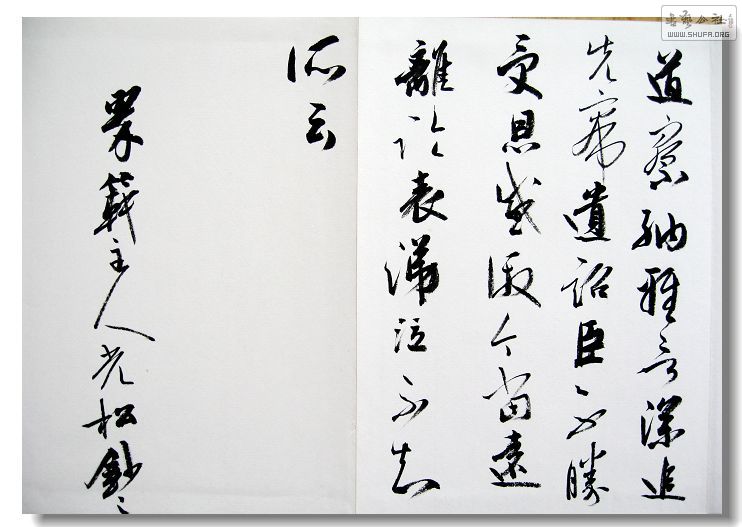 書藝公社
WWW.SHUFA.ORG
道察納雅言深追
先帝遺詔臣不勝
受恩感激今當遠
離臨表涕泣不知
所云
主人光松鈔